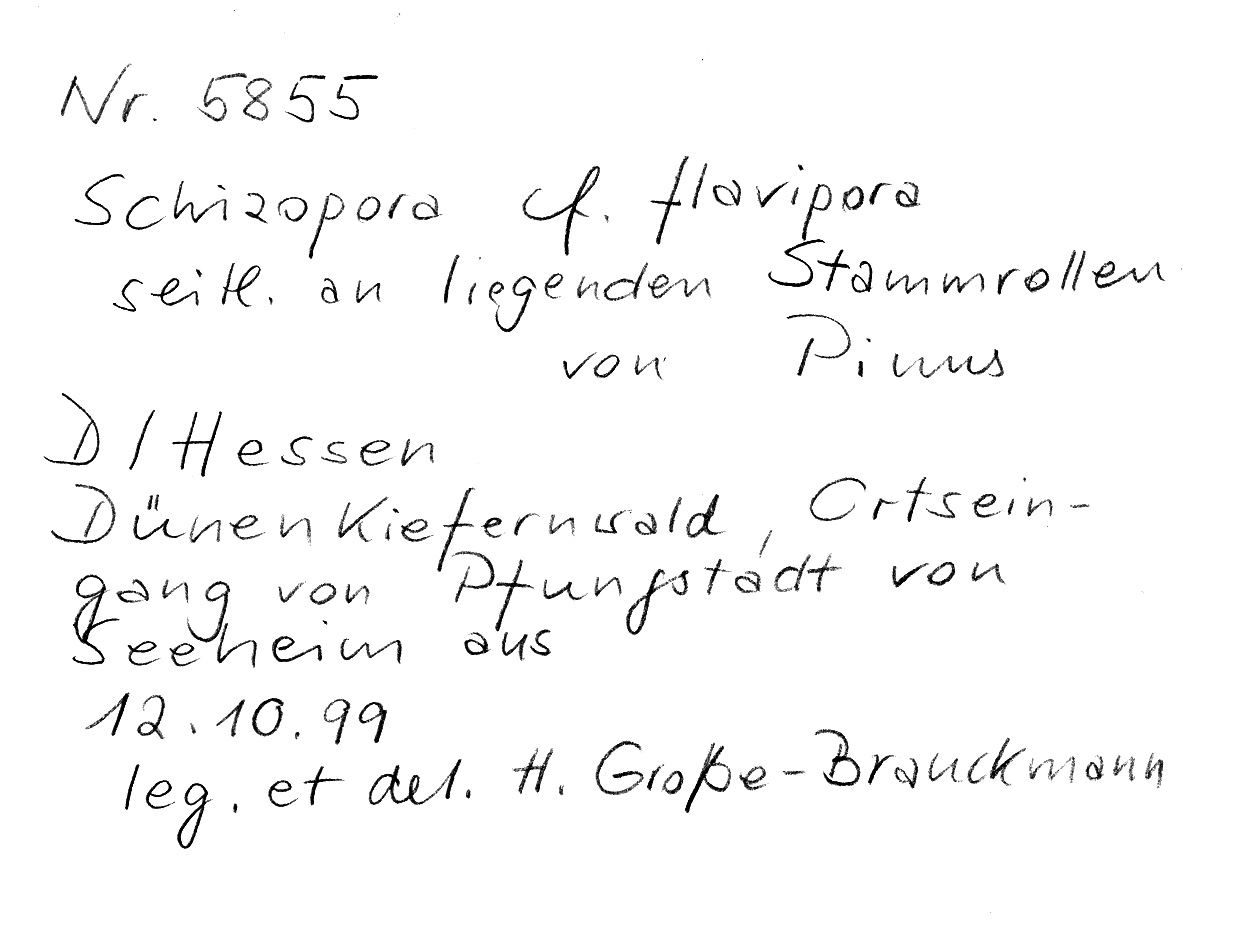 Nr. 5855
Schizopora cf. flavipora
seitl. an liegenden Stammrollen
von Pinus
D/Hessen
Dünenkiefernwald, Ortsein-
gang von Pfungstadt von
Seeheim aus
12.10.99
leg. et det. H. Große-Brauckmann